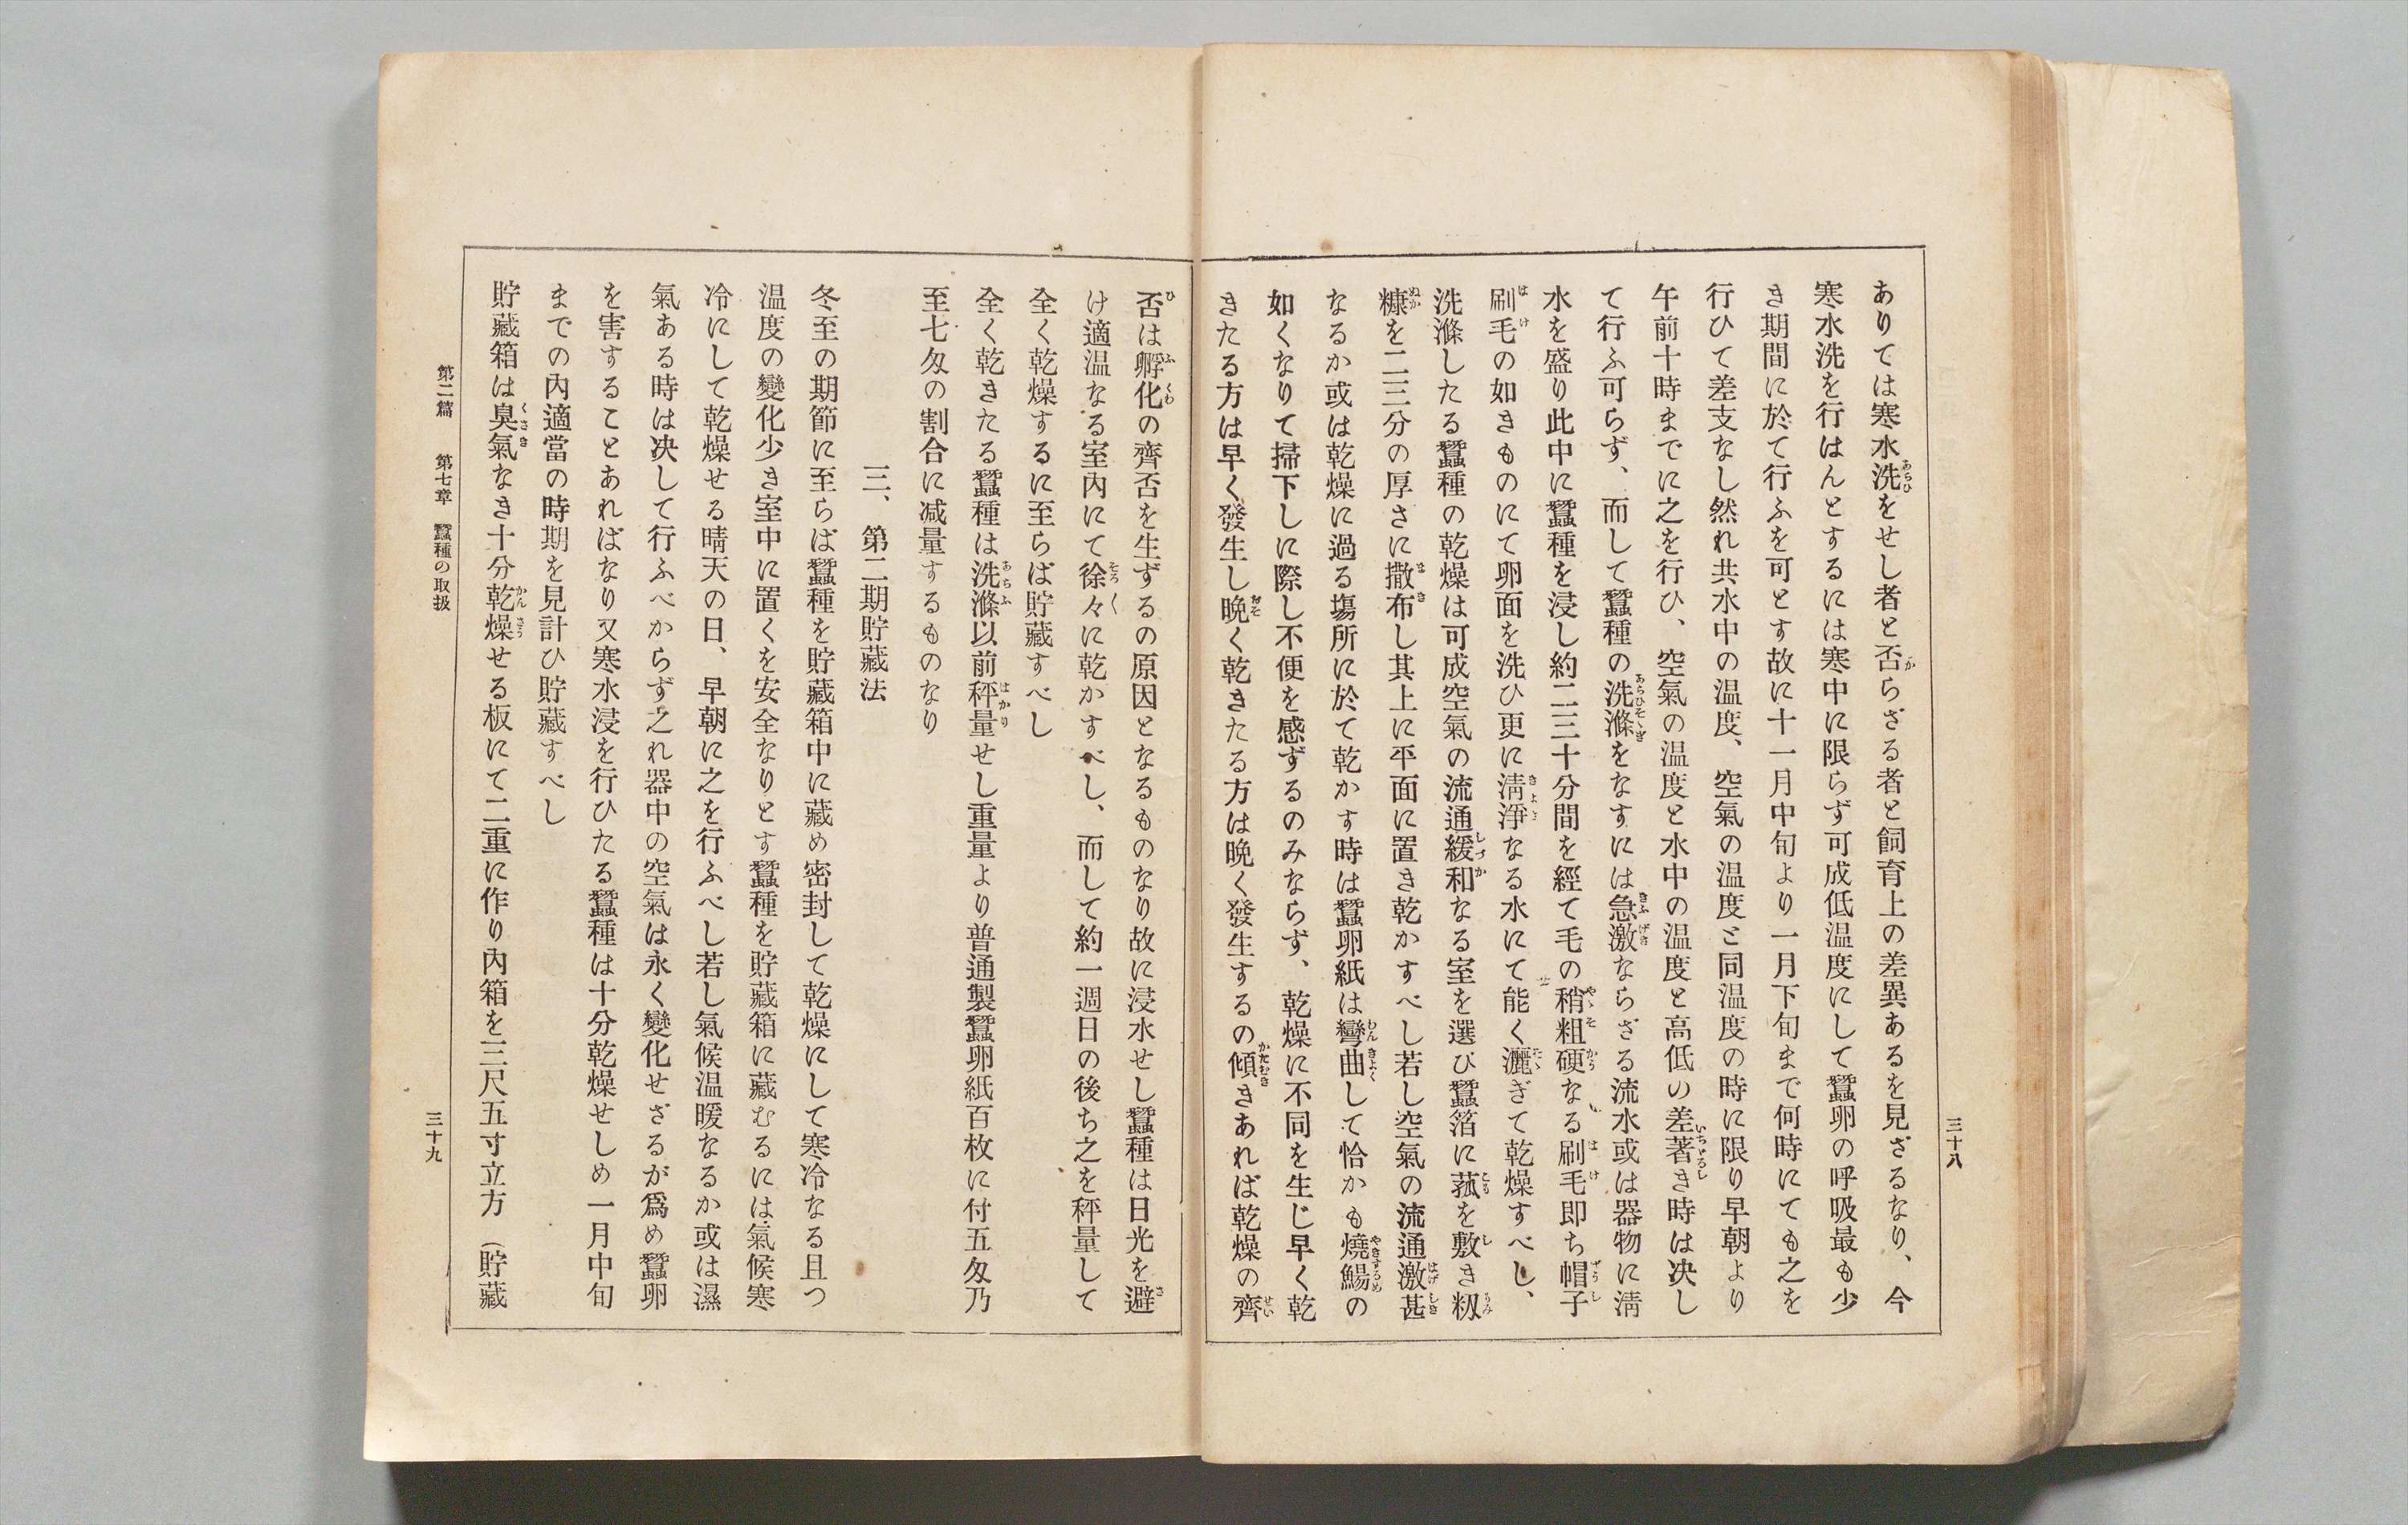 三十八
ありては寒水洗をせし者と否らざる者と飼育上の差異あるを見ざるなり、今
寒水洗を行はんとするには寒中に限らず可成低温度にして蠶卵の呼吸最も少
き期間に於て行ふを可とす故に十一月中旬より一月下旬まで何時にても之を
行ひて差支なし然れ共水中の温度、空氣の温度と同温度の時に限り早朝より
午前十時までに之を行ひ、空氣の温度と水中の温度と高低の差著き時は决し
て行ふ可らず、而して蠶種の洗滌をなすには急激ならざる流水或は器物に淸
水を盛り此中に蠶種を浸し約二三十分間を經て毛の稍粗硬なる刷毛即ち帽子
刷毛の如きものにて卵面を洗ひ更に淸淨なる水にて能く灑ぎて乾燥すべし、
洗滌したる蠶種の乾燥は可成空氣の流通緩和なる室を選び蠶箔に菰を敷き籾
糠を二三分の厚さに撒布し其上に平面に置き乾かすべし若し空氣の流通激甚
なるか或は乾燥に過る塲所に於て乾かす時は蠶卵紙は彎曲して恰かも燒鯣の
如くなりて掃下しに際し不便を感ずるのみならず、乾燥に不同を生じ早く乾
きたる方は早く發生し晩く乾きたる方は晩く發生するの傾きあれば乾燥の齊
否は孵化の齊否を生ずるの原因となるものなり故に浸水せし蠶種は日光を避
け適温なる室內にて徐々に乾かすべし、而して約一週日の後ち之を秤量して
全く乾燥するに至らば貯藏すべし
全く乾きたる蠶種は洗滌以前秤量せし重量より普通製蠶卵紙百枚に付五匁乃
至七匁の割合に減量するものなり
三、第二期貯藏法
冬至の期節に至らば蠶種を貯藏箱中に藏め密封して乾燥にして寒冷なる且つ
温度の變化少き室中に置くを安全なりとす蠶種を貯藏箱に藏むるには氣候寒
冷にして乾燥せる晴天の日、早朝に之を行ふべし若し氣候温暖なるか或は濕
氣ある時は决して行ふべからず之れ器中の空氣は永く變化せざるが爲め蠶卵
を害することあればなり又寒水浸を行ひたる蠶種は十分乾燥せしめ一月中旬
までの內適當の時期を見計ひ貯藏すべし
貯藏箱は臭氣なき十分乾燥せる板にて二重に作り內箱を三尺五寸立方（貯藏
第二篇　第七章　蠶種の取扱
三十九